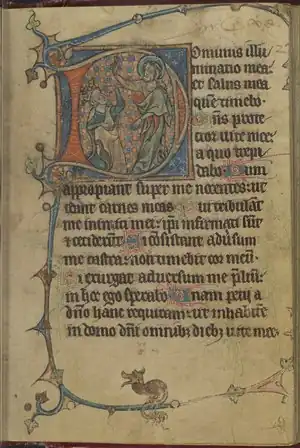 Dominus illu
minatio mea:
et salus mea
que timebo:
ns prote
ctor uite mee:
a quo trepi
dabo. Dum
appropiant super me nocentes: ut
edant carnes meas Qui tribulant
me inimici mei: ipi infirmati sūt
et ceciderūt Si consistant adūsum
me castra: non timebit cor meū.
Si exurgat aduersum me pliū:
in hoc ego sperabo Unam petii a
dn̄o hanc requiram: ut inhabitē
in domo dn̄i omnibꝫ diebꝫ uite mee.